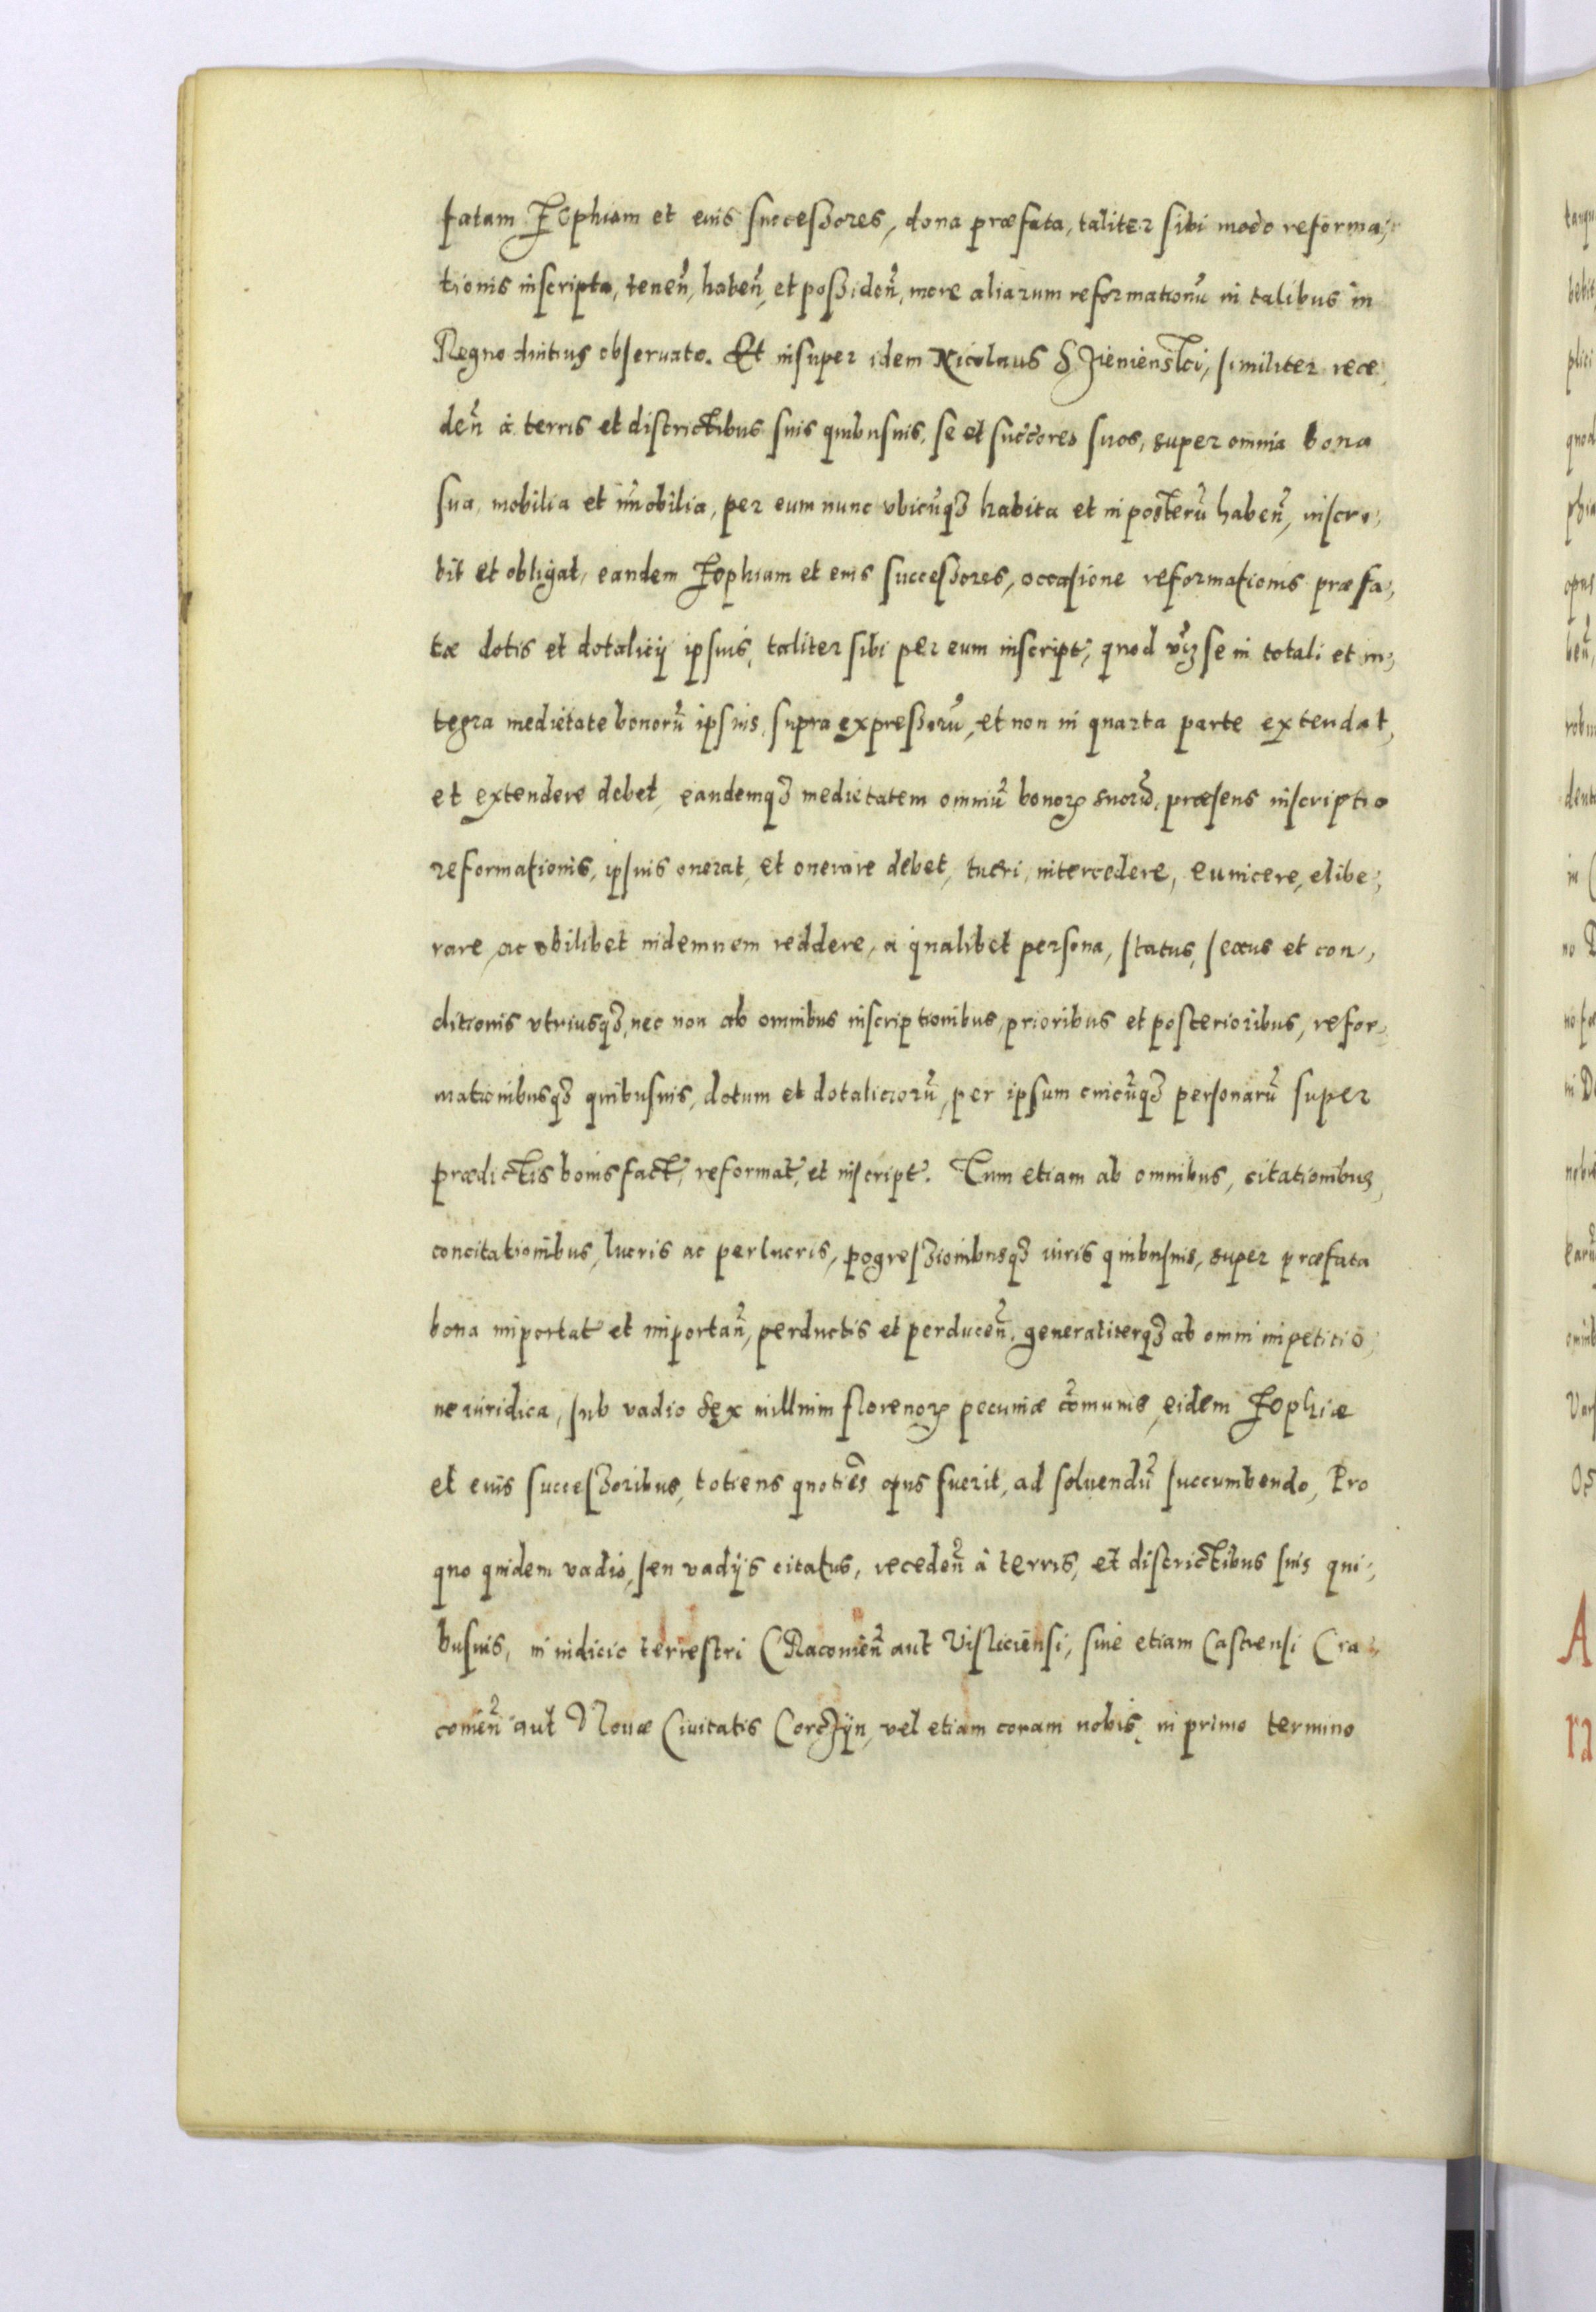 fatam Zophiam et eius successores, dona præfata, taliter sibi modo reforma,,
tionis inscripta, tenen̄, haben̄, et possiden̄, more aliarum reformationū in talibus in
Regno diutius obseruato. Et insuper idem Nicolaus Szienienski, similiter rece,
den̄ à terris et districtibus suis quibusuis, se et succ̄ores suos, super omnia bona
sua, mobilia et im̄obilia, per eum nunc vbicūqꝫ habita et in posterū haben̄, inscri,,
bit et obligat, eandem Zophiam et eius successores, occasione reformationis præfa,,
tæ dotis et dotalicij ipsius, taliter sibi per eum inscript̄, quod vꝫ se in totali et in,,
tegra medietate bonorū ipsius, supra expressorū, et non in quarta parte extendat,
et extendere debet, eandemqꝫ medietatem omniū bonoꝝ suorū, præsens inscriptio
reformationis, ipsius onerat, et onerare debet, tueri, intercedere, euincere, elibe,,
rare, ac vbilibet indemnem reddere, a qualibet persona, status, sexus et con,
ditionis vtriusqꝫ, nec non ab omnibus inscriptionibus, prioribus et posterioribus, refor,,
mationibusqꝫ quibusuis, dotum et dotaliciorū, per ipsum cuicūqꝫ personarū super
prædictis bonis fact̄, reformat̄, et inscript̄. Tum etiam ab omnibus, citationibus,
concitationibus, lucris ac perlucris, pogressionibusqꝫ iuris quibusuis, super præfata
bona importat̄ et importan̄, perductis et perducen̄, generaliterqꝫ ab omni impetitio,,
ne iuridica, sub vadio sex millium florenoꝝ pecuniæ com̄unis, eidem Zophiæ
et eius successoribus, totiens quotiēs opus fuerit, ad soluendū succumbendo, Pro
quo quidem vadio, seu vadijs citatus, receden̄ à terris, et districtibus suis qui,,
busuis, in iudicio terrestri CRacouien̄ aut Visliciensi, siue etiam Castrensi Cra,,
couien̄ aut Nouæ Ciuitatis Corczyn, vel etiam coram nobis, in primo termino